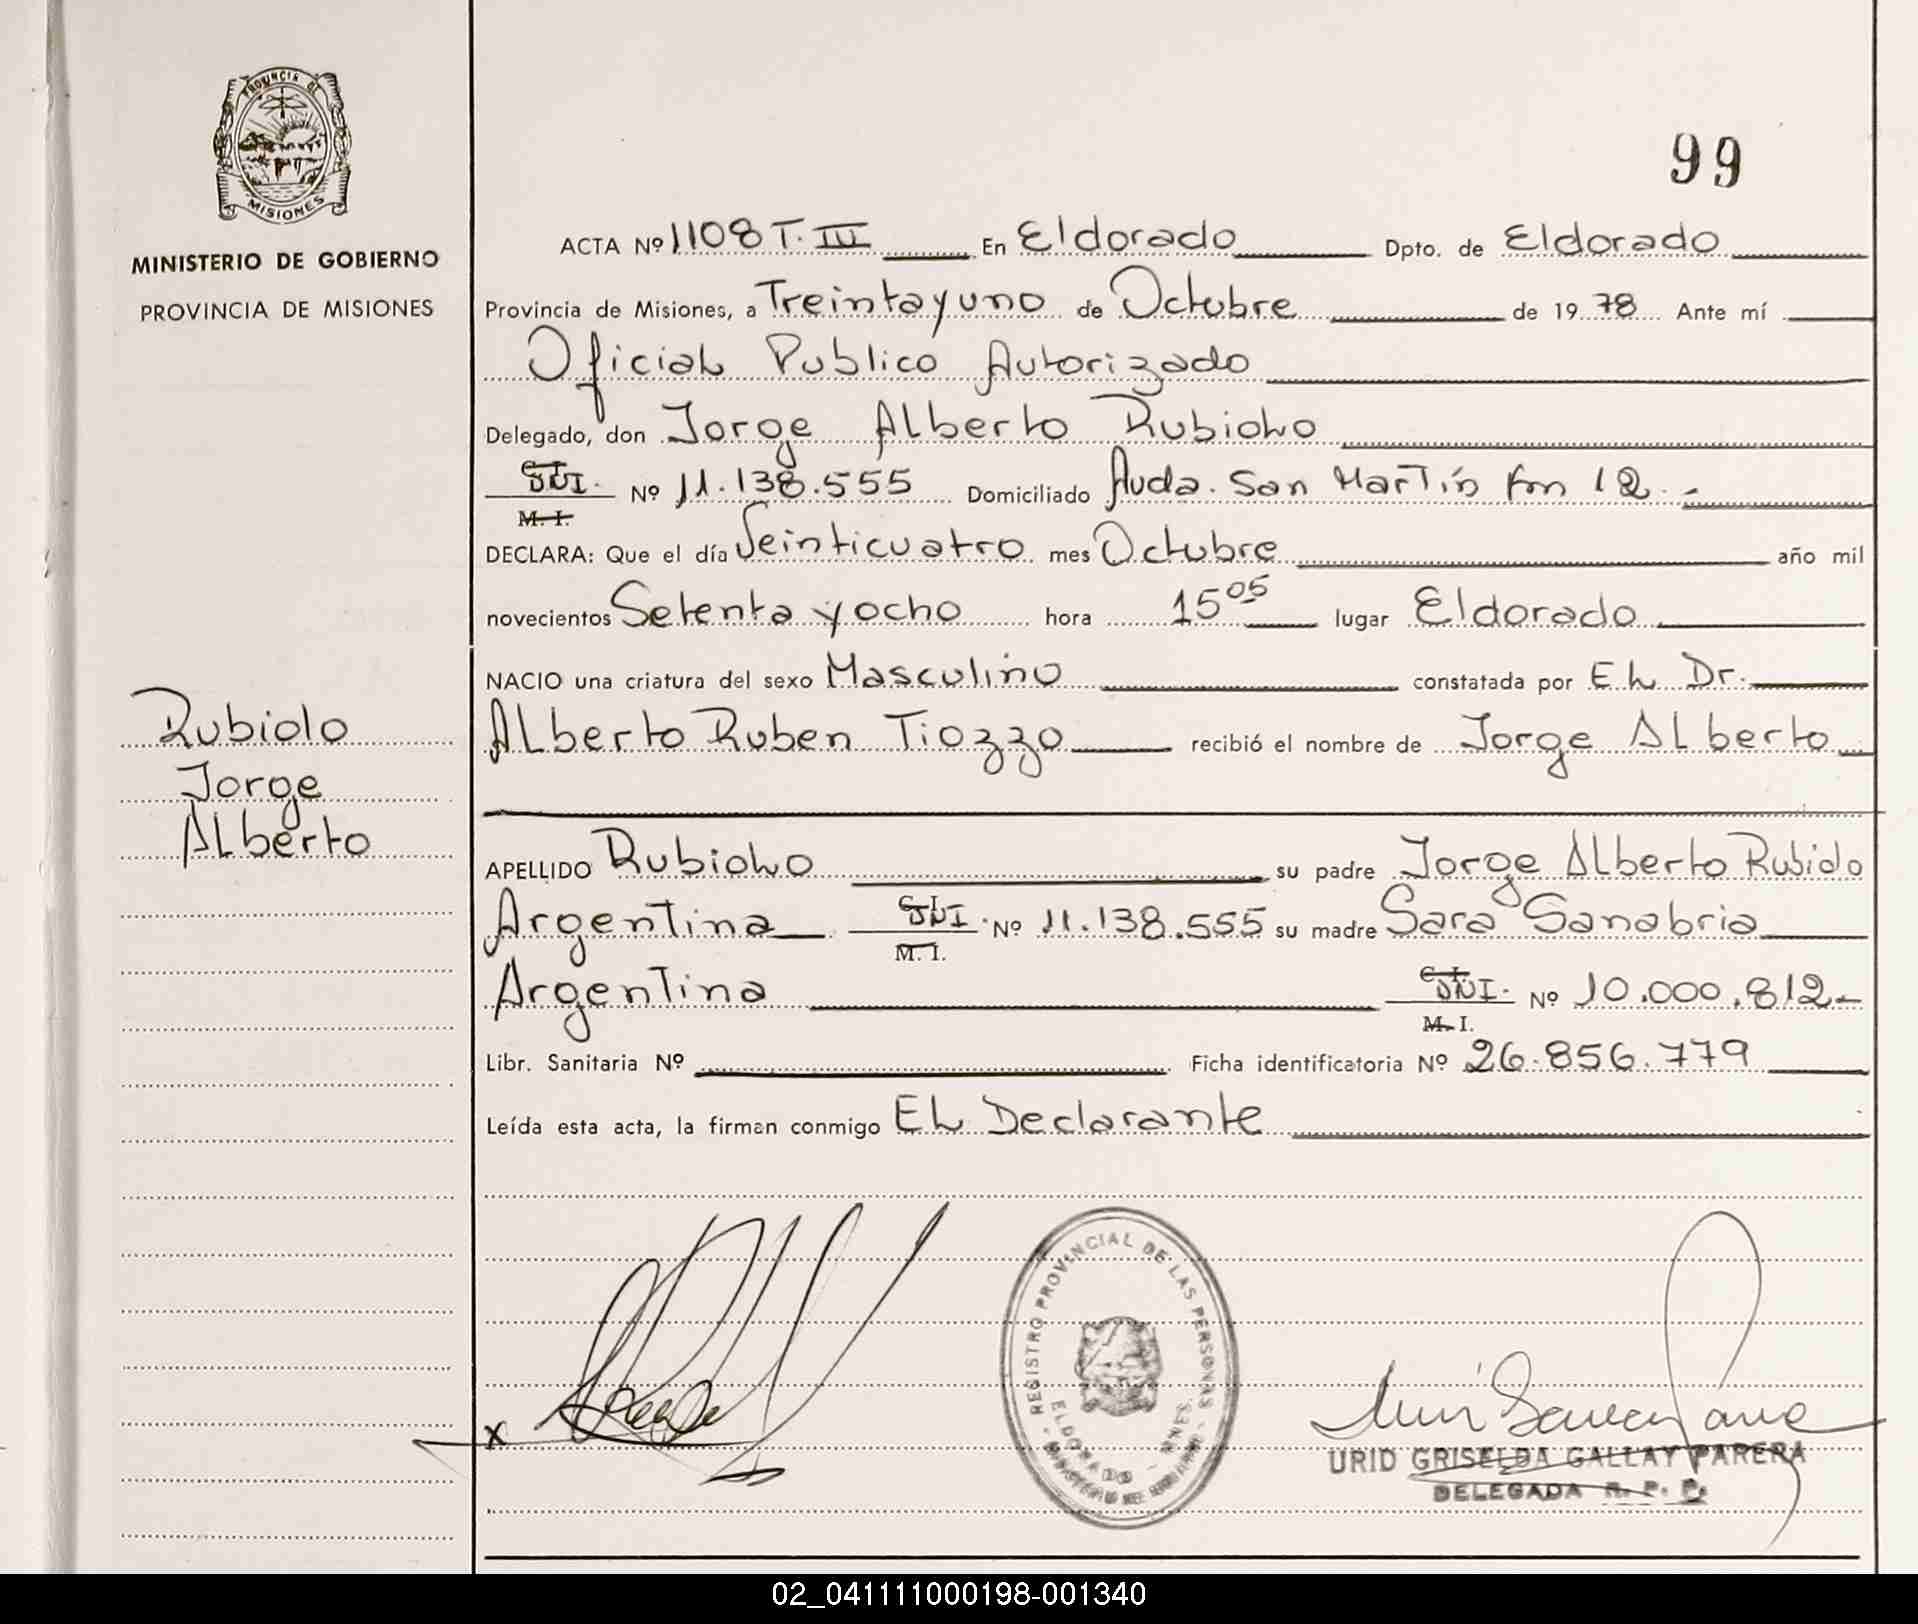 PROVINCIA DE
MISIONES
MINISTERIO DE GOBIERNO
PROVINCIA DE MISIONES
99
ACTA Nº 1108 T. III En Eldorado Dpto. de Eldorado
Provincia de Misiones, a Treintayuno de Octubre de 19 78 Ante mí
Oficial Publico Autorizado
Delegado, don Jorge Alberto Rubiolo
DNI. Nº 11.138.555 Domiciliado Avda. San Martín Km 12.-
M. I.
DECLARA: Que el día Veinticuatro mes Octubre año mil
novecientos Setenta y ocho hora 15 05 lugar Eldorado
NACIO una criatura del sexo Masculino constatada por El Dr.
Alberto Ruben Tiozzo recibió el nombre de Jorge Alberto
Rubiolo
Jorge
Alberto
APELLIDO Rubiolo su padre Jorge Alberto Rubiolo
Argentina DNI. Nº 11.138.555 su madre Sara Sanabria
M. I.
Argentina DNI. Nº 10.000.812-
M. I.
Libr. Sanitaria Nº Ficha identificatoria Nº 26.856.779
Leída esta acta, la firman conmigo El Declarante
x
REGISTRO PROVINCIAL DE LAS PERSONAS
ELDORADO - MNES.
URID GRISELDA GALLAY PARERA
DELEGADA R. P. P.
02_041111000198-001340